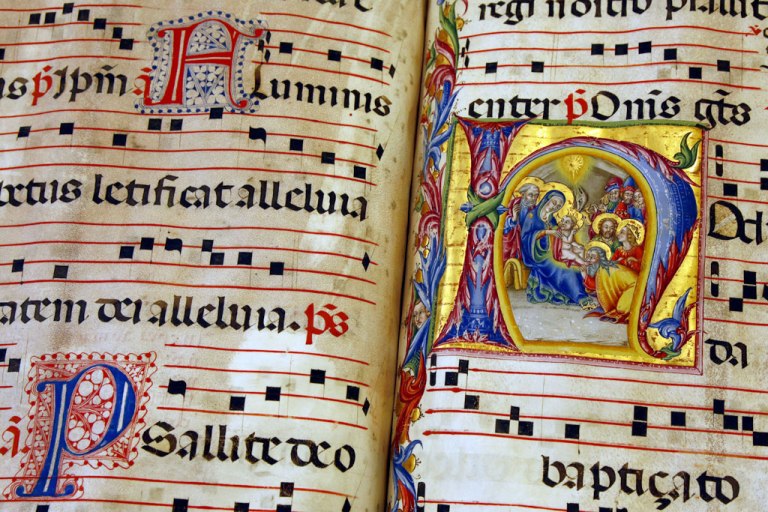 us p̄s Ipm̄ a Fluminis
etus letificat alleluia
tatem dei alleluia. p̄s
a. Psallite deo
regi nostro psallit
enter p̄s Om̄s gt̄s
Hodi
da
baptiçato